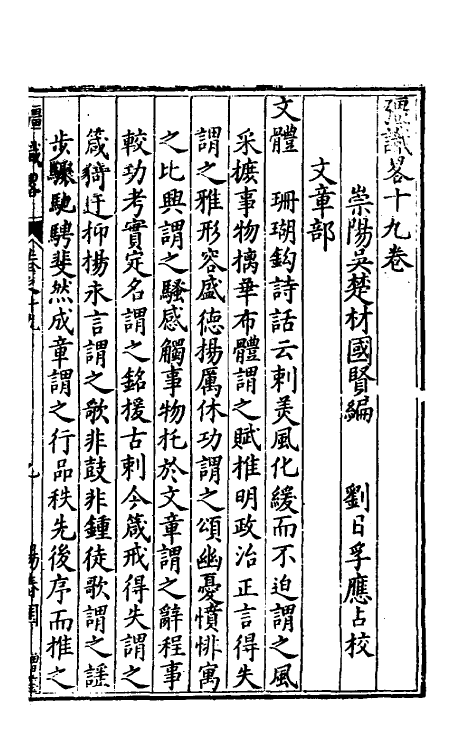 彊識畧十九卷
崇陽吳楚材國賢編　劉日孚應占校
文章部
文體　珊瑚鈎詩話云刺美風化緩而不迫謂之風
采摭事物摛華布體謂之賦推明政治正言得失
謂之雅形容盛德揚厲休功謂之頌幽憂憤悱寓
之比興謂之騷感觸事物托於文章謂之辭程事
較功考實定名謂之銘援古刺今箴戒得失謂之
箴猗迂抑揚永言謂之歌非鼓非鍾徒歌謂之謡
步驟馳騁斐然成章謂之行品秩先後序而推之
彊識畧